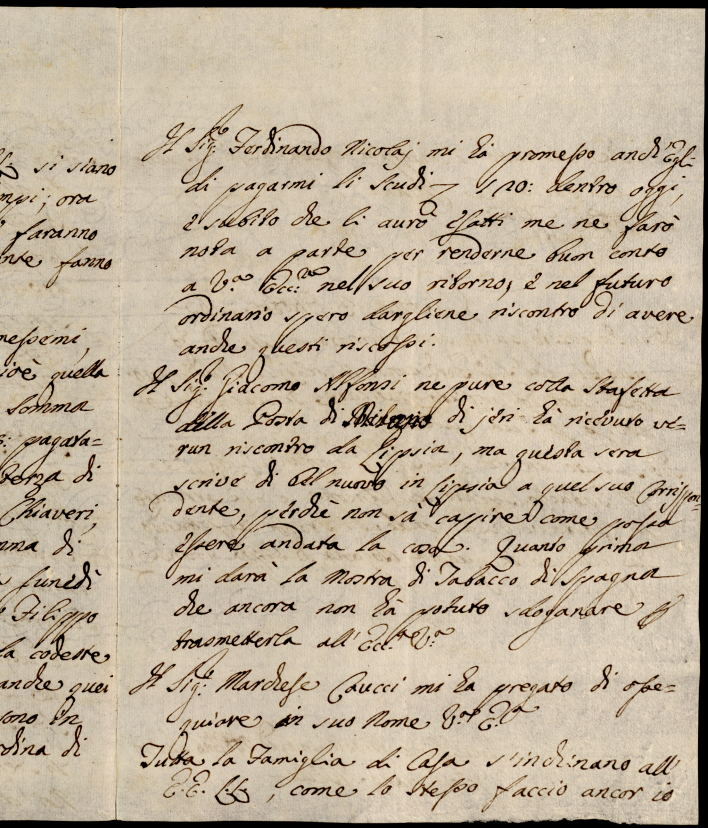 si siano
ora
faranno
fanno
quella
somma
pagata=
di
Chiaveri,
di
lunedì
Filippo
la codeste
anche quei
sono in
di
Il Sig.re Ferdinando Nicolaj mi hà promesso anch'Egli
di pagarmi li scudi 120: dentro oggi,
e subito che li aurò esatti me ne farò
nota a parte per renderne buon conto
a V.ra Ecc.za nel suo ritorno; e nel futuro
ordinario spero dargliene riscontro di avere
anche questi riscossi.
Il Sig.re Giacomo Alfonsi ne pure colla Stafetta
della Posta di Milano di jeri hà ricevuto ve=
run riscontro da Lipsia, ma questa sera
scrive di bel nuovo in Lipsia a quel suo Corrispon=
dente, perchè non sà capire come possa
essere andata la cosa. Quanto prima
mi darà la mostra di Tabacco di Spagna
che ancora non hà potuto sdoganare p
trasmetterla all'Ecc.za V.ra
Il Sig.re Marchese Caucci mi hà pregato di osse=
quiare in suo Nome V.ra E.za
Tutta la Famiglia di Casa s'inchinano all'
E.E. LL., come lo stesso faccio ancor io